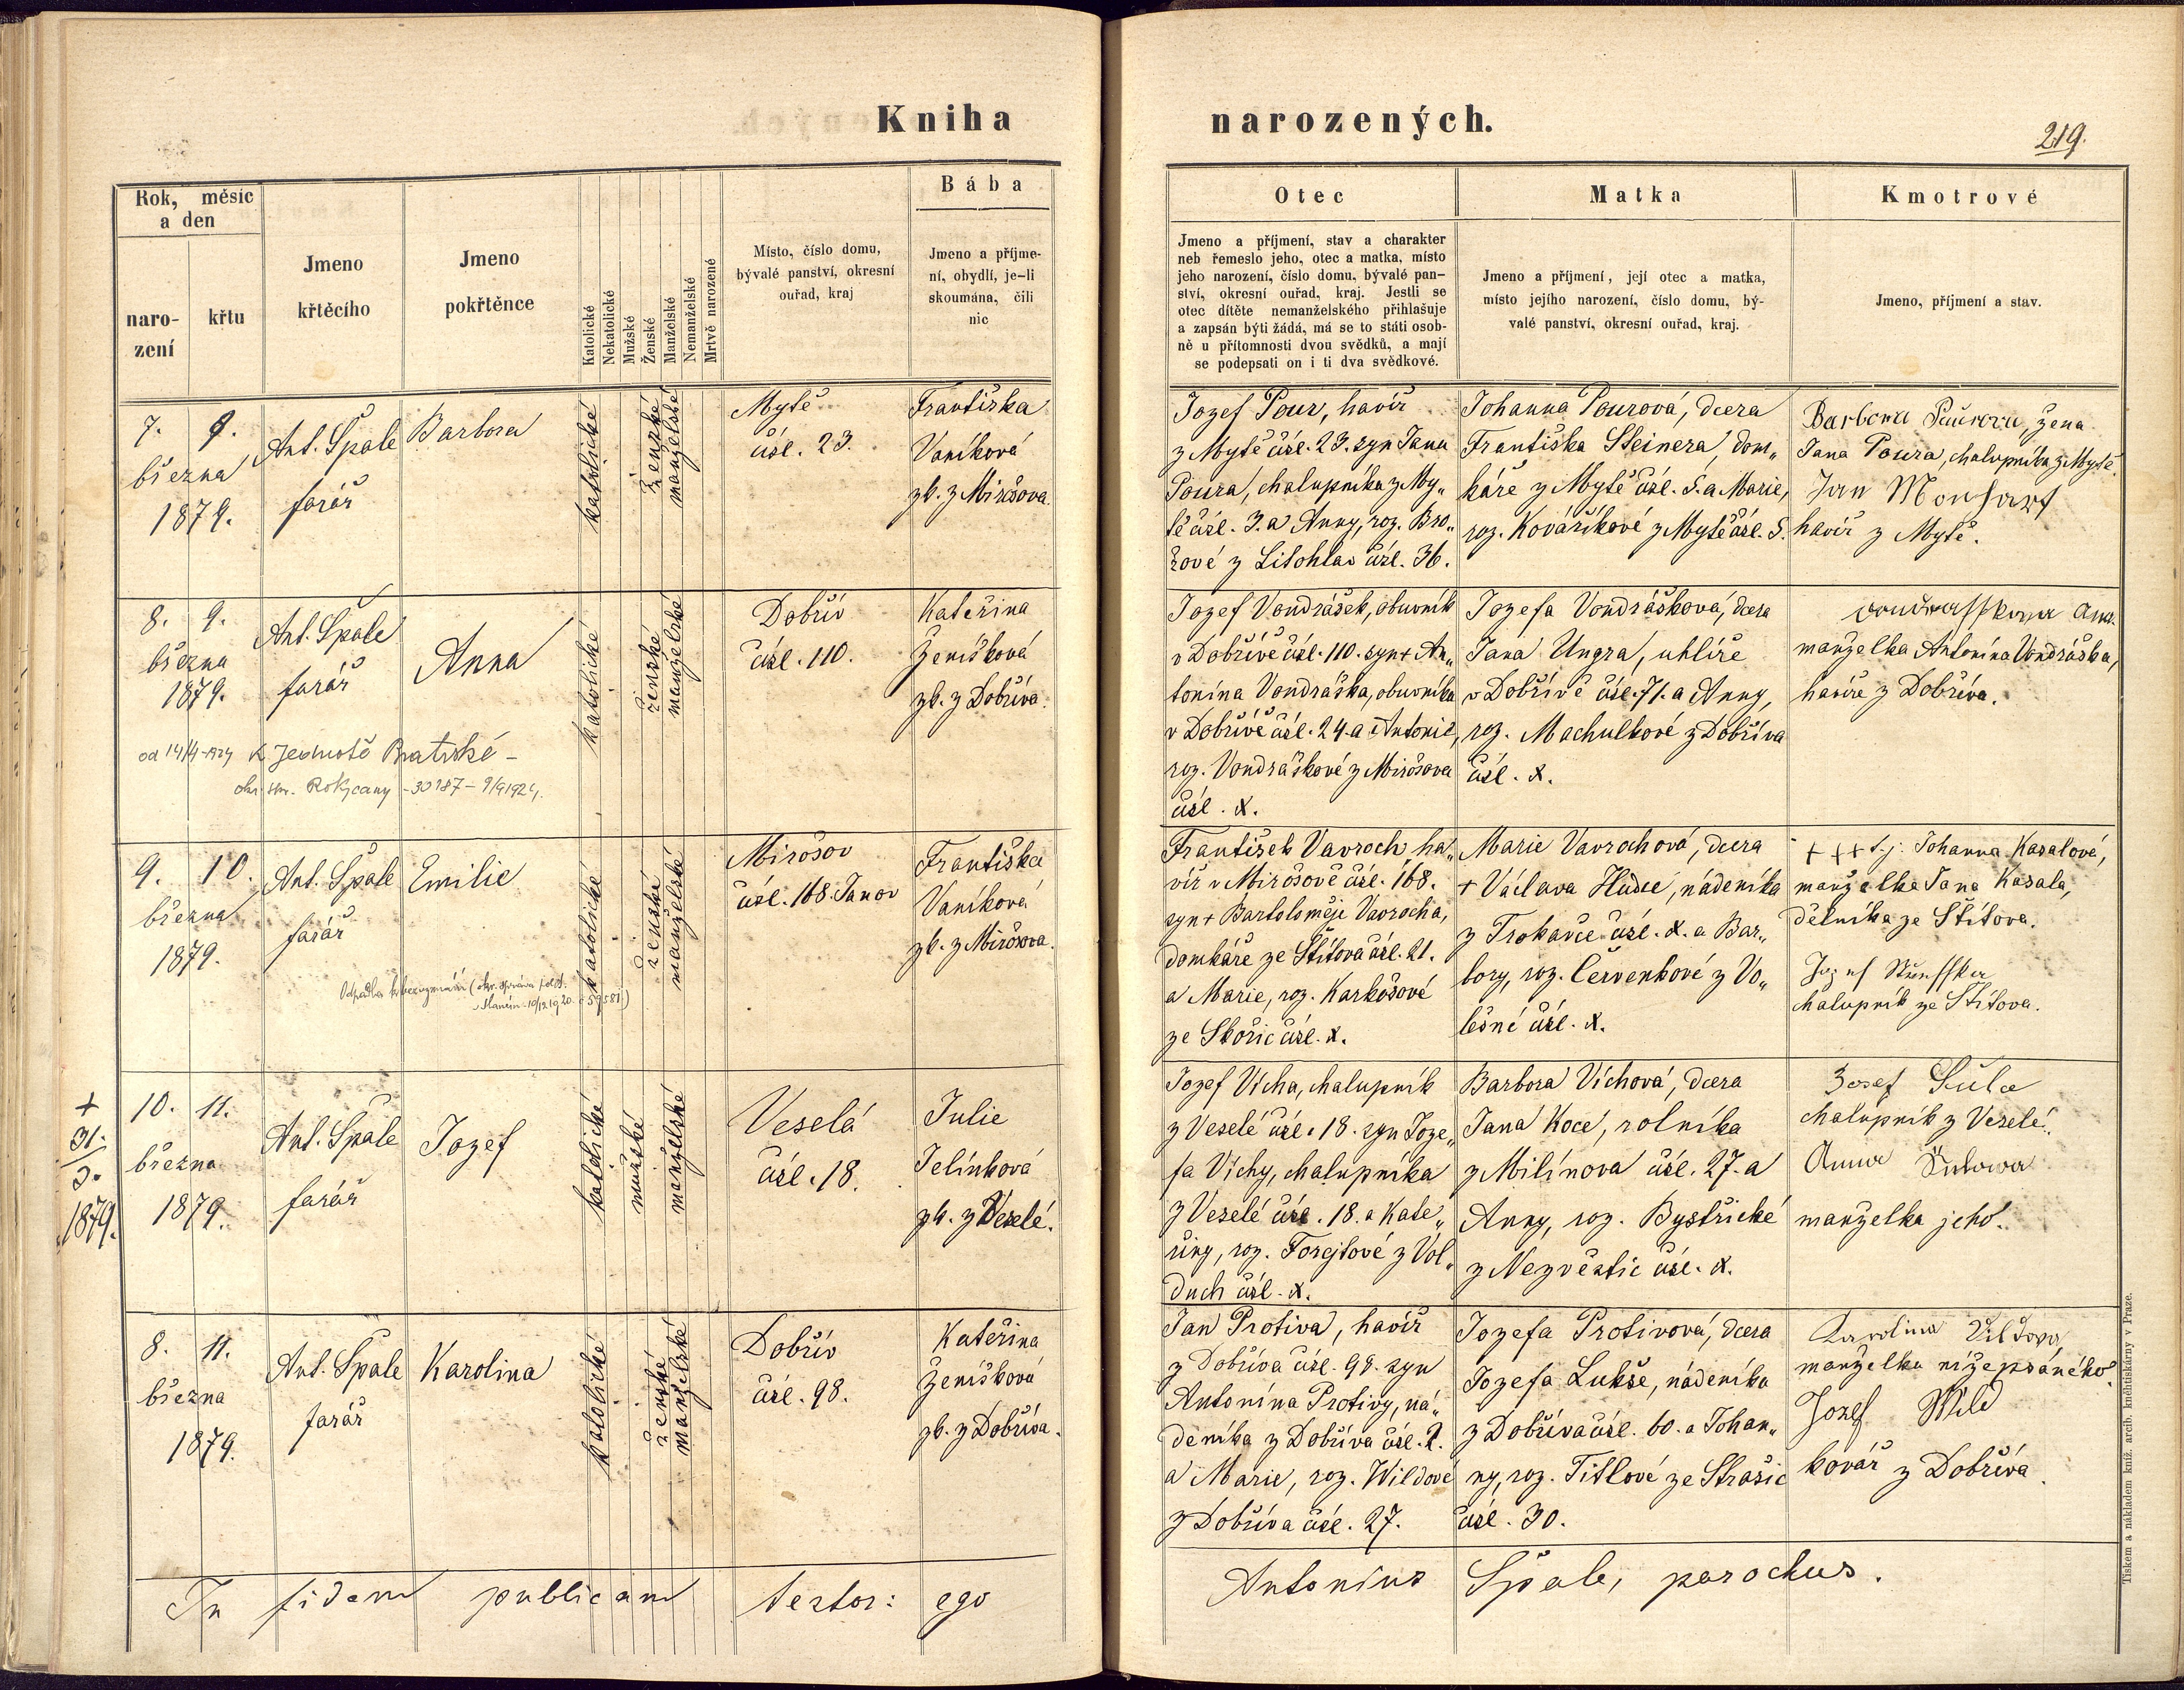 Kniha narozených.
219.
Rok, měsíc
a den
naro-
zení
křtu
Jmeno
křtěcího
Jmeno
pokřtěnce
Katolické
Nekatolické
Mužské
Ženské
Manželské
Nemanželské
Mrtvě narozené
Místo, číslo domu,
bývalé panství, okresní
ouřad, kraj
Bába
Jmeno a příjme-
ní, obydlí, je-li
skoumána, čili
nic
Otec
Jmeno a příjmení, stav a charakter
neb řemeslo jeho, otec a matka, místo
jeho narození, číslo domu, bývalé pan-
ství, okresní ouřad, kraj. Jestli se
otec dítěte nemanželského přihlašuje
a zapsán býti žádá, má se to státi osob-
ně u přítomnosti dvou svědků, a mají
se podepsati on i ti dva svědkové.
Matka
Jmeno a příjmení, její otec a matka,
místo jejího narození, číslo domu, bý-
valé panství, okresní ouřad, kraj.
Kmotrové
Jmeno, příjmení a stav.
7. 9.
března
1879.
Ant. Špale
farář
Barbora
katolické
ženské
manželské
Mytě
čísl. 23.
Františka
Vaníková
zk. z Mirošova.
Jozef Pour, havíř
z Mytě čísl. 23. syn Jana
Poura, chalupníka z My„
tě čísl. 3. a Anny, roz. Bro„
žové z Litohlav čísl. 36.
Johanna Pourová, dcera
Františka Steinera, dom„
káře z Mytě čísl. 5. a Marie,
roz. Kováříkové z Mytě čísl. 5.
Barbora Paurova, žena
Jana Poura, chalupníka z Mytě.
Jan
havíř z Mytě.
8. 9.
března
1879.
Ant. Špale
farář
Anna
katolické
ženské
manželské
Dobřív
čísl. 110.
Kateřina
Ženíšková
zk. z Dobříva.
od 14/4-1924 k Jednotě Bratrské -
Rokycany - 30787 - 9/9 1924.
Jozef Vondrášek, obuvník
v Dobřívě čísl. 110. syn + An„
tonína Vondráška, obuvníka
v Dobřívě čísl. 24. a Antonie,
roz. Vondráškové z Mirošova
čísl. x.
Jozefa Vondrášková, dcera
Jana Ungra, uhlíře
v Dobřívě čísl. 71. a Anny,
roz. Machulkové z Dobříva
čísl. x.
manželka Antonína Vondráška,
havíře z Dobříva.
9. 10.
března
1879.
Ant. Špale
farář
Emilie
katolické
ženské
manželské
Mirošov
čísl. 168. Janov
Františka
Vaníková
zk. z Mirošova.
Odpadla k bezvyznání (okr. správa polit.
10/12 1920. č 59581.)
František Vavroch, ha„
víř v Mirošově čísl. 168.
syn + Bartoloměje Vavrocha,
domkáře ze Štítova čísl. 21.
a Marie, roz. Karkošové
ze Skořic čísl. x.
Marie Vavrochová, dcera
+ Václava Hudce, nádeníka
z Trokavce čísl. x. a Bar„
bory, roz. Červenkové z Vo„
lešné čísl. x.
+++ t. j. Johanna Kasalové,
manželka Jana Kasala,
dělníka ze Štítova.
Jozef
chalupník ze Štítova.
+
31.
3.
1879.
10. 11.
března
1879.
Ant. Špale
farář
Jozef
katolické
mužské
manželské
Veselá
čísl. 18.
Julie
Jelínková
zk. z Veselé.
Jozef Vícha, chalupník
z Veselé čísl. 18. syn Joze„
fa Víchy, chalupníka
z Veselé čísl. 18. a Kate„
řiny, roz. Forejtové z Vol„
duch čísl. x.
Barbora Víchová, dcera
Jana Koce, rolníka
z Milínova čísl. 27. a
Anny, roz. Bystřické
z Nezvěstic čísl. x.
Josef Šula
chalupník z Veselé.
Anna Šulowa
manželka jeho.
8. 11.
března
1879.
Ant. Špale
farář
Karolina
katolické
ženské
manželské
Dobřív
čísl. 98.
Kateřina
Ženíšková
zk. z Dobříva.
Jan Protiva, havíř
z Dobříva čísl. 98. syn
Antonína Protivy, ná„
deníka z Dobříva čísl. 2.
a Marie, roz. Wildové
z Dobříva čísl. 27.
Jozefa Protivová, dcera
Jozefa Lukše, nádeníka
z Dobříva čísl. 60. a Johan„
ny, roz. Titlové ze Strašic
čísl. 30.
Karolina Vildova,
manželka nížepsaného.
Jozef Wild
kovář z Dobříva.
In fidem publicam testor: ego Antonius Špale, parochus.
Tiskem a nákladem kníž. arcib. knihtiskárny v Praze.